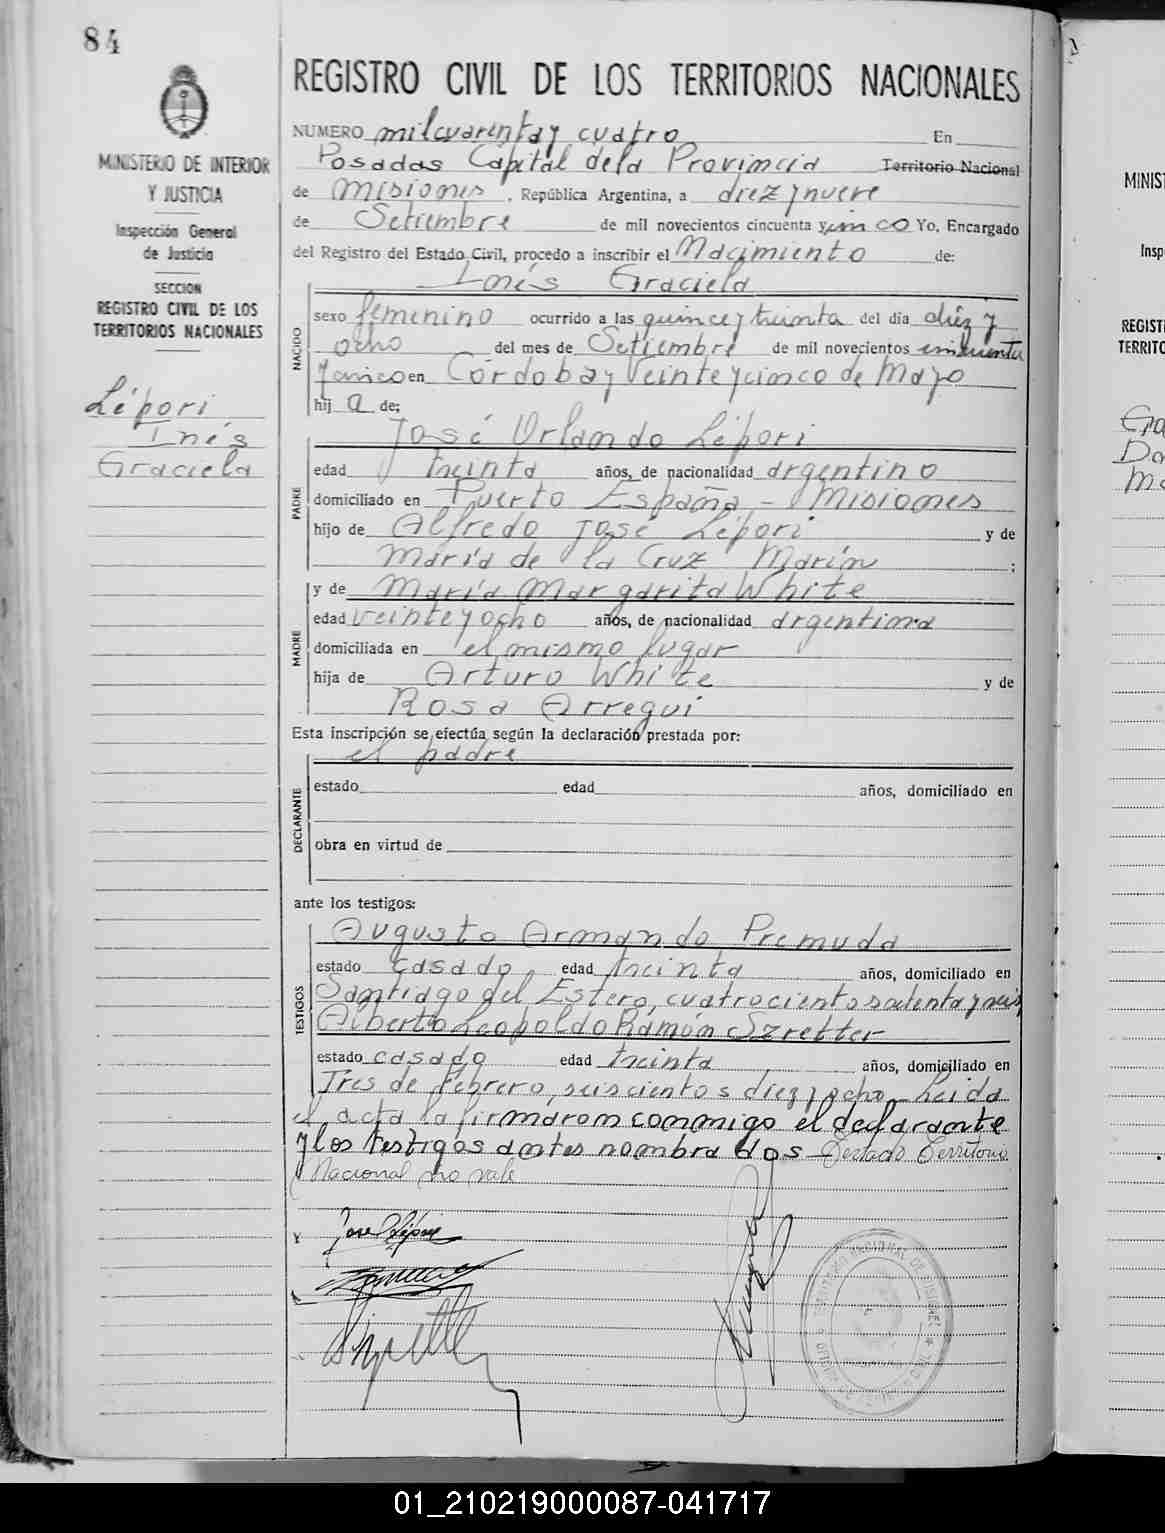 84
MINISTERIO DE INTERIOR
Y JUSTICIA
Inspección General
de Justicia
SECCION
REGISTRO CIVIL DE LOS
TERRITORIOS NACIONALES
Lépori
Inés
Graciela
REGISTRO CIVIL DE LOS TERRITORIOS NACIONALES
NUMERO mil cuarenta y cuatro En
Posadas Capital de la Provincia Territorio Nacional
de Misiones, República Argentina, a diez y nueve
de Setiembre de mil novecientos cincuenta y cinco Yo, Encargado
del Registro del Estado Civil, procedo a inscribir el Nacimiento de:
Inés Graciela
NACIDO
sexo femenino ocurrido a las quince y treinta del día diez y
ocho del mes de Setiembre de mil novecientos cincuenta
y cinco en Córdoba y Veinte y cinco de Mayo
hij a de:
José Orlando Lépori
PADRE
edad treinta años, de nacionalidad argentino
domiciliado en Puerto España - Misiones
hijo de Alfredo José Lépori y de
María de la Cruz Marín ;
y de María Margarita White
MADRE
edad veinte y ocho años, de nacionalidad argentina
domiciliada en el mismo lugar
hija de Arturo White y de
Rosa Arregui
Esta inscripción se efectúa según la declaración prestada por:
el padre
DECLARANTE
estado edad años, domiciliado en
obra en virtud de
ante los testigos:
Augusto Armando Premuda
TESTIGOS
estado casado edad treinta años, domiciliado en
Santiago del Estero, cuatrocientos setenta y seis
Alberto Leopoldo Ramón Szretter
estado casado edad treinta años, domiciliado en
Tres de Febrero, seiscientos diez y ocho - Leida
el acta la firmaron conmigo el declarante
y los testigos antes nombrados - Testado Territorio
Nacional no vale
José O Lépori
01_210219000087-041717
MINIST
Insp
REGIST
TERRITO